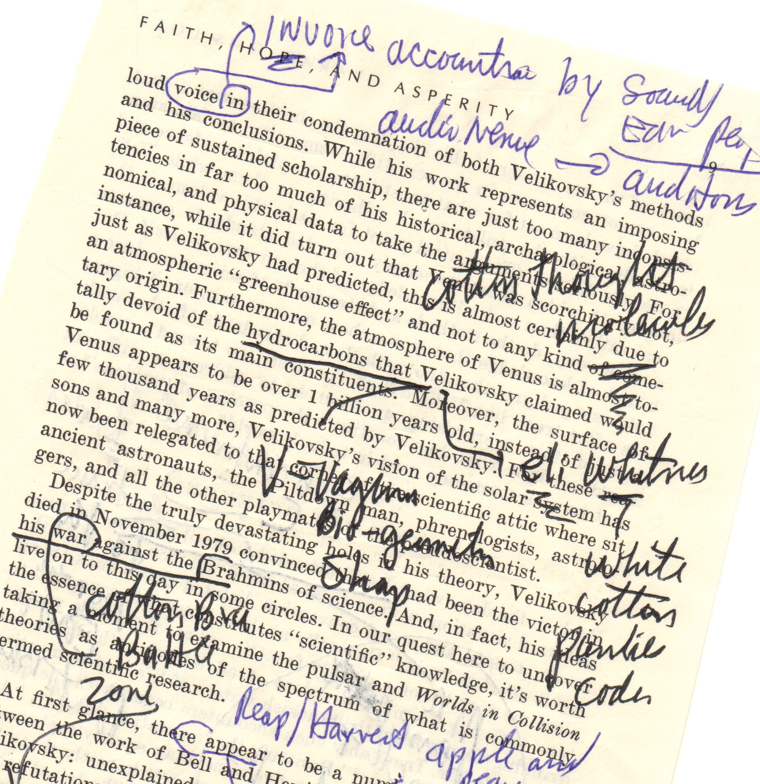 FAITH, HOPE, AND ASPERITY
9
Invoice accounts by Sound
audio Nerve → auditors
loud voice in their condemnation of both Velikovsky's methods
and his conclusions. While his work represents an imposing
piece of sustained scholarship, there are just too many inconsis-
tencies in far too much of his historical, archaeological, astro-
nomical, and physical data to take the arguments seriously. For
instance, while it did turn out that Venus was scorching hot,
just as Velikovsky had predicted, this is almost certainly due to
an atmospheric "greenhouse effect" and not to any kind of come-
tary origin. Furthermore, the atmosphere of Venus is almost to-
tally devoid of the hydrocarbons that Velikovsky claimed would
be found as its main constituents. Moreover, the surface of
Venus appears to be over 1 billion years old, instead of
few thousand years as predicted by Velikovsky. For these rea-
sons and many more, Velikovsky's vision of the solar system has
now been relegated to that scientific attic where sit
ancient astronauts, the Piltdown man, phrenologists, astrolo-
gers, and all the other playmates
Despite the truly devastating holes in his theory, Velikovsky
died in November 1979 convinced had been the victor in
his war against the Brahmins of science. And, in fact, his ideas
live on to this day in some circles. In our quest here to uncover
the essence constitutes "scientific" knowledge, it's worth
taking a moment to examine the pulsar and Worlds in Collision
theories as of the spectrum of what is commonly
termed scientific research.
At first glance, there appear to be a
tween the work of Bell and
likovsky: unexplained
refutation
cotton thought
molecules
eli Whitney
V-Vagina
Bio-geometry
Shap
white
cotton
panties
codes
cotton Bra
Ball
Zone
Reap/Harvest apple and